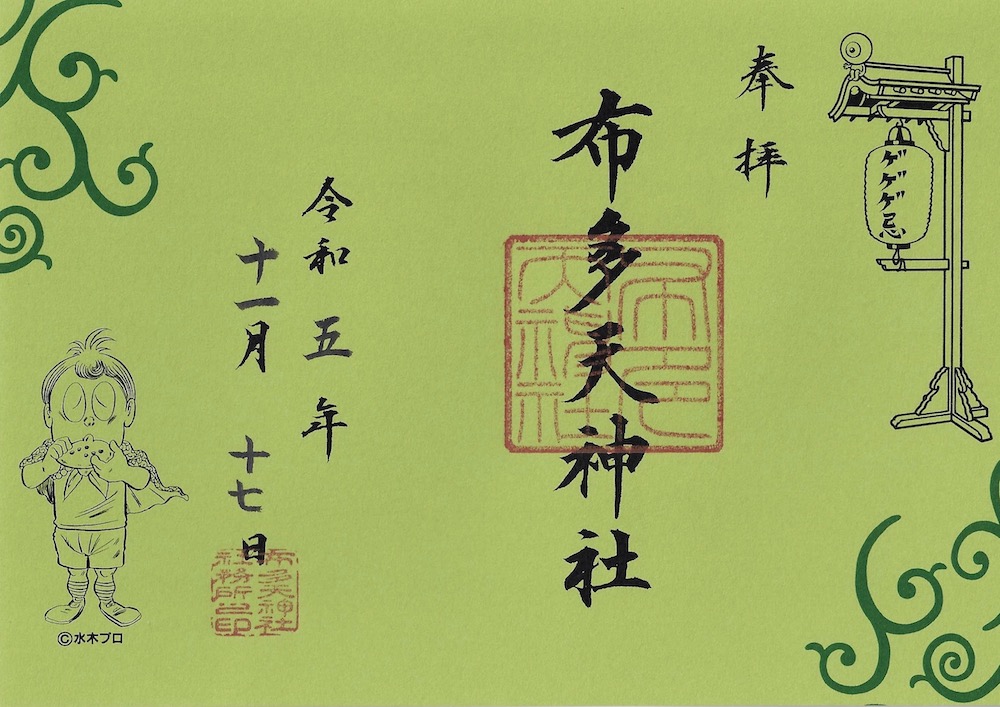 ゲゲゲ忌
奉拝
布多天神社
令和五年
十一月十七日
布多天神社
社務所之印
©水木プロ